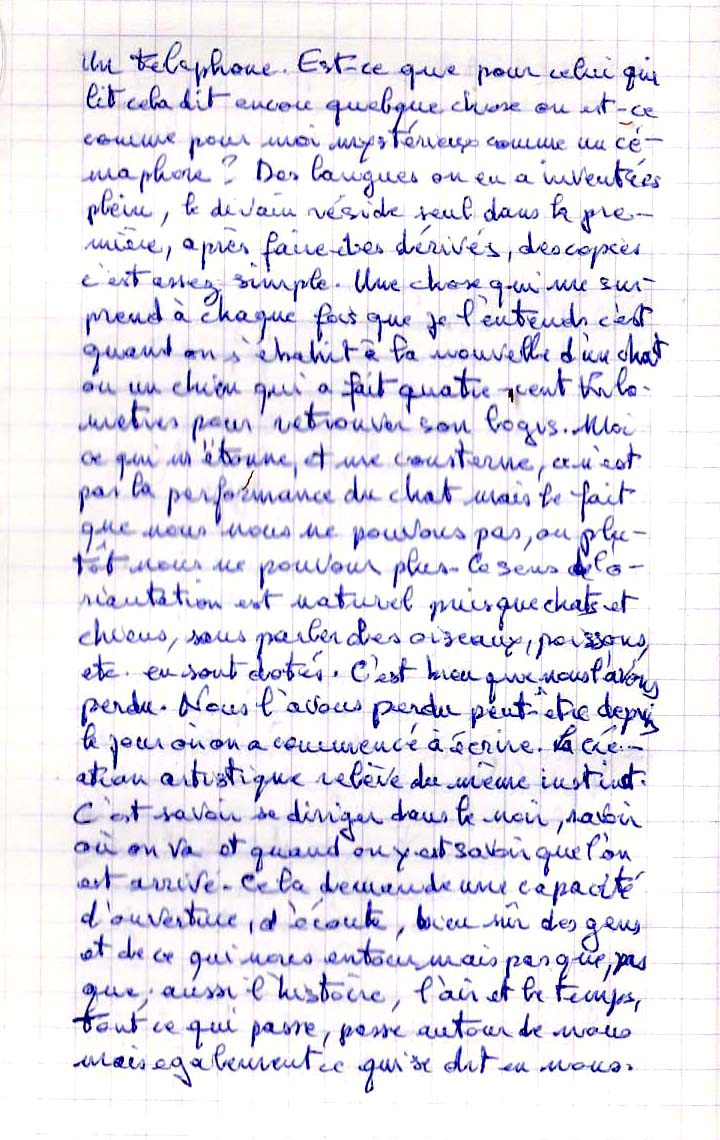 Un telephone. Est-ce que pour celui qui
lit cela dit encore quelque chose ou est-ce
comme pour moi mystérieux comme un cé-
maphore ? Des langues on en a inventées
plein, le devain réside seul dans la pre-
mière, après faire des dérivés, des copies
c'est assez simple. Une chose qui me sur-
prend à chaque fois que je l'entends c'est
quand on s'ébahit à la nouvelle d'un chat
ou un chien qui a fait quatre-cent kilo-
mètres pour retrouver son logis. Moi
ce qui m'étonne, et me consterne, ce n'est
pas la performance du chat mais le fait
que nous nous ne pouvons pas, ou plu-
tôt nous ne pouvons plus. Ce sens de l'o-
rientation est naturel puisque chats et
chiens, sans parler des oiseaux, poissons,
etc. en sont dotés. C'est bien que nous l'avons
perdu. Nous l'avons perdu peut-être depuis
le jour où on a commencé à écrire. La cré-
ation artistique relève du même instinct.
C'est savoir se diriger dans le noir, savoir
où on va et quand on y est savoir que l'on
est arrivé. Cela demande une capacité
d'ouverture, d'écoute, bien sûr des gens
et de ce qui nous entoure, mais pas que, pas
que, aussi l'histoire, l'air et le temps,
tout ce qui passe, passe autour de nous
mais egalement ce qui se dit en nous.